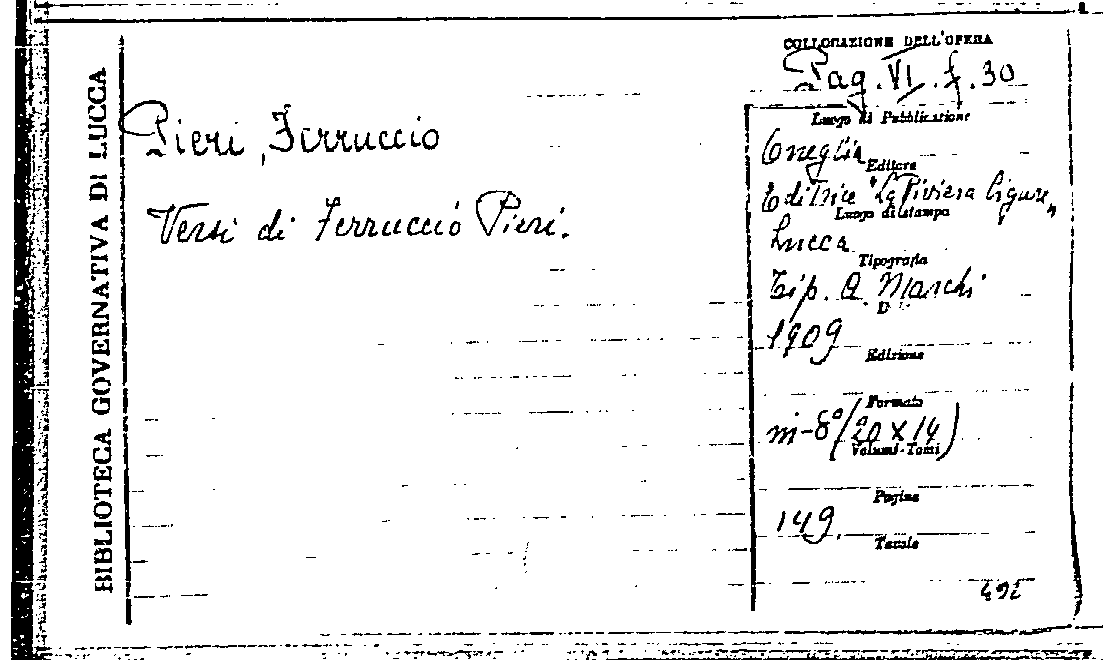 BIBLIOTECA GOVERNATIVA DI LUCCA
Pieri, Ferruccio
Versi di Ferruccio Pieri.
COLLOCAZIONE DELL'OPERA
Pag. VI. f. 30
Luogo di Pubblicazione
Oneglia
Editore
Editrice "La Riviera Ligure"
Luogo di stampa
Lucca
Tipografia
Tip. A. Marchi
1909
Edizione
Formato
in-8° (20 X 14)
Volumi-Tomi
Pagine
149.
Tavole